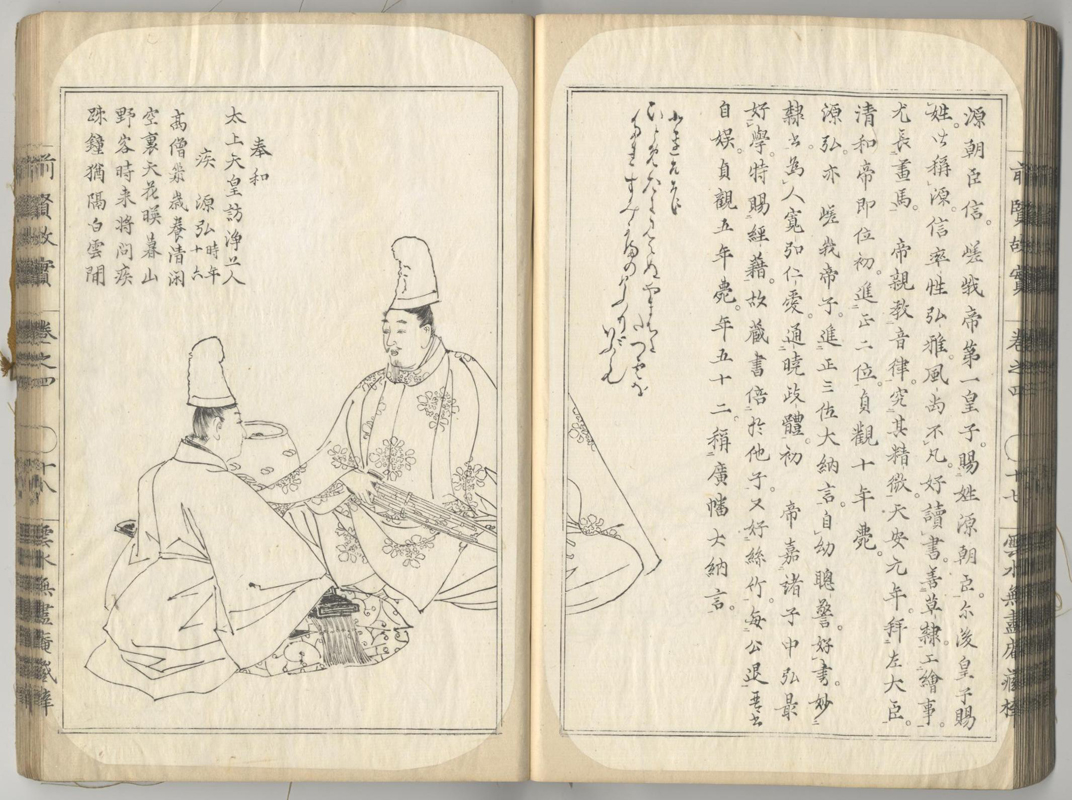 前賢故實 卷之四 十七 雲水無盡庵藏梓
源朝臣信。嵯峨帝第一皇子。賜姓源朝臣。尓後皇子賜
姓皆稱源。信率性弘雅。風尚不凡。好讀書。善草隸。工繪事。
尤長畫馬。 帝親教音律。究其精微。天安元年。拜左大臣。
清和帝即位初。進正二位。貞觀十年薨。
源弘亦 嵯我帝子。進正三位大納言。自幼聰警。好書。妙
隸書。為人寬弘仁愛。通曉政體。初 帝嘉諸子中弘最
好學。特賜經藉。故藏書倍於他子。又好絲竹。每公退。琴書
自娛。貞觀五年薨。年五十二。稱廣幡大納言。
奉和
太上天皇訪淨上人
疾 源弘 時年十六
高僧幾歲養清閑
空裏天花暎暮山
野客時来將問疾
踈鐘猶隔白雲間
前賢故實 卷之四 十八 雲水無盡庵藏梓